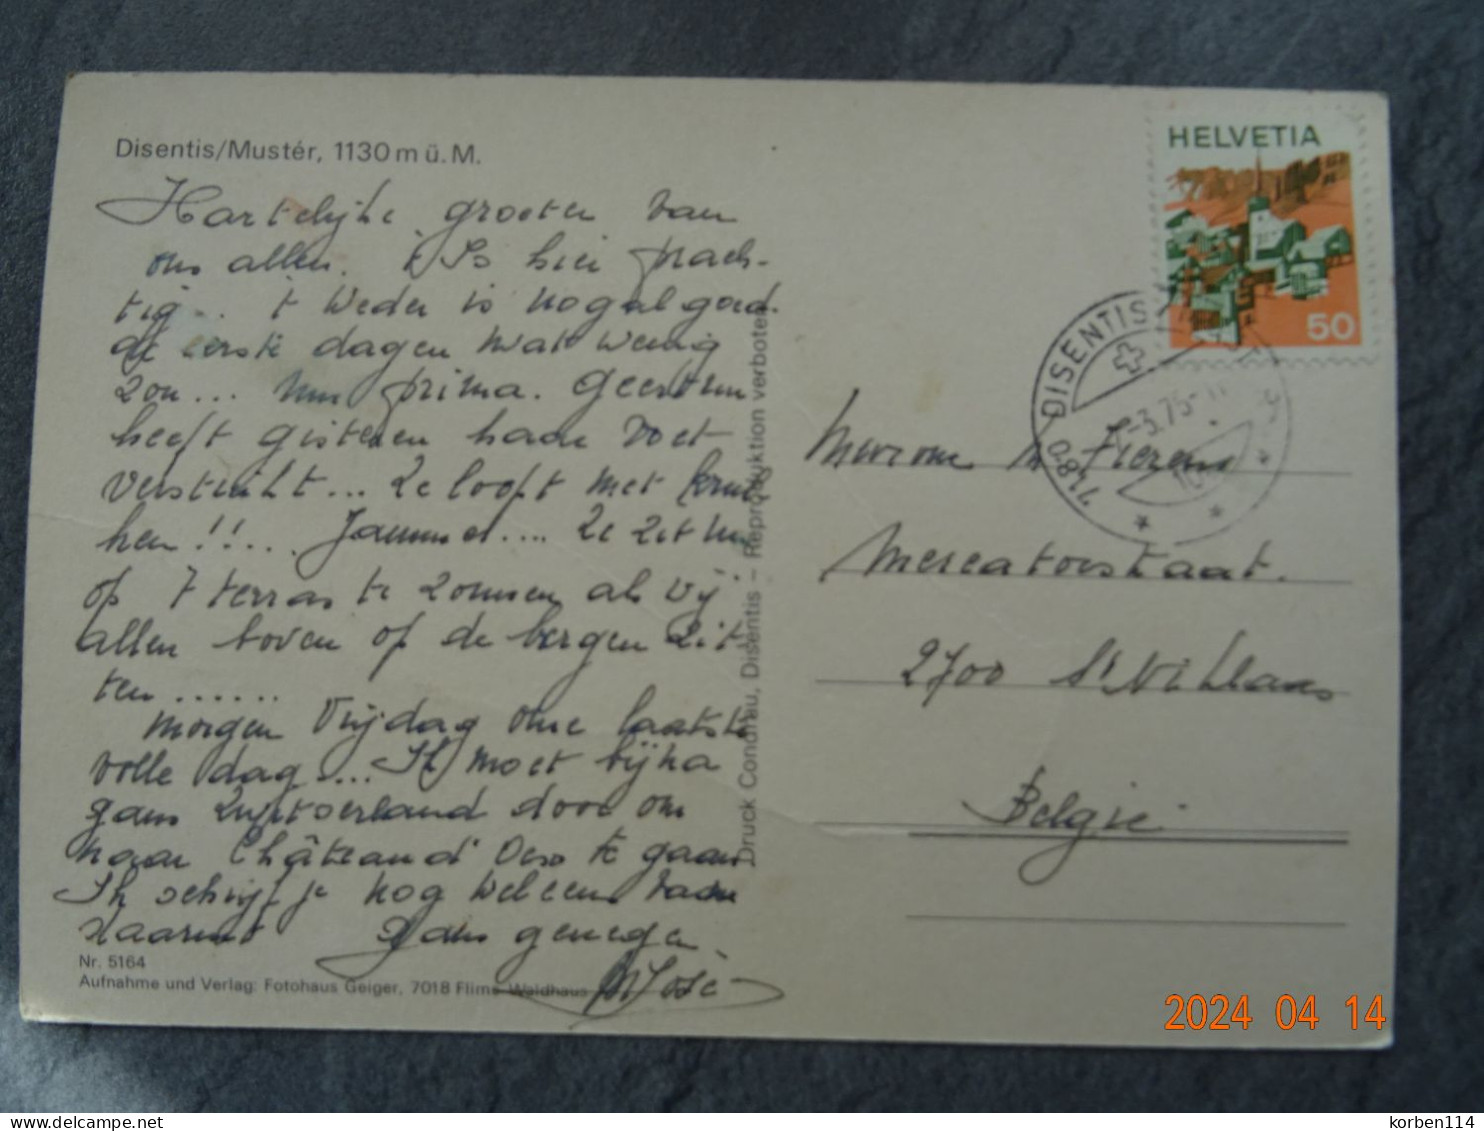 Disentis/Mustér, 1130 m ü. M.
Hartelijke groeten van
ons allen. 't Is hier prach-
tig... 't Weder is nogal goed.
de eerste dagen wat weinig
zon... nu prima. Geertrui
heeft gisteren haar voet
verstuikt... Ze loopt met kruk-
ken!!... Jammer.... Ze zit nu
op 't terras te zonnen als wij
allen boven op de bergen zit-
ten......
Morgen Vrijdag onze laatste
volle dag... Ik moet bijna
gans Zwitserland door om
naar Château d'Oex te gaan.
Ik schrijf je nog wel eens van
daaruit Gans genegen
José
Nr. 5164
Aufnahme und Verlag: Fotohaus Geiger, 7018 Flims-Waldhaus
Druck Condrau, Disentis – Reproduktion verboten
HELVETIA
50
7180 DISENTIS
-3.75-11
Mevrouw Fierens
Mercatorstraat.
2700 St Niklaas
België
2024 04 14
korben114